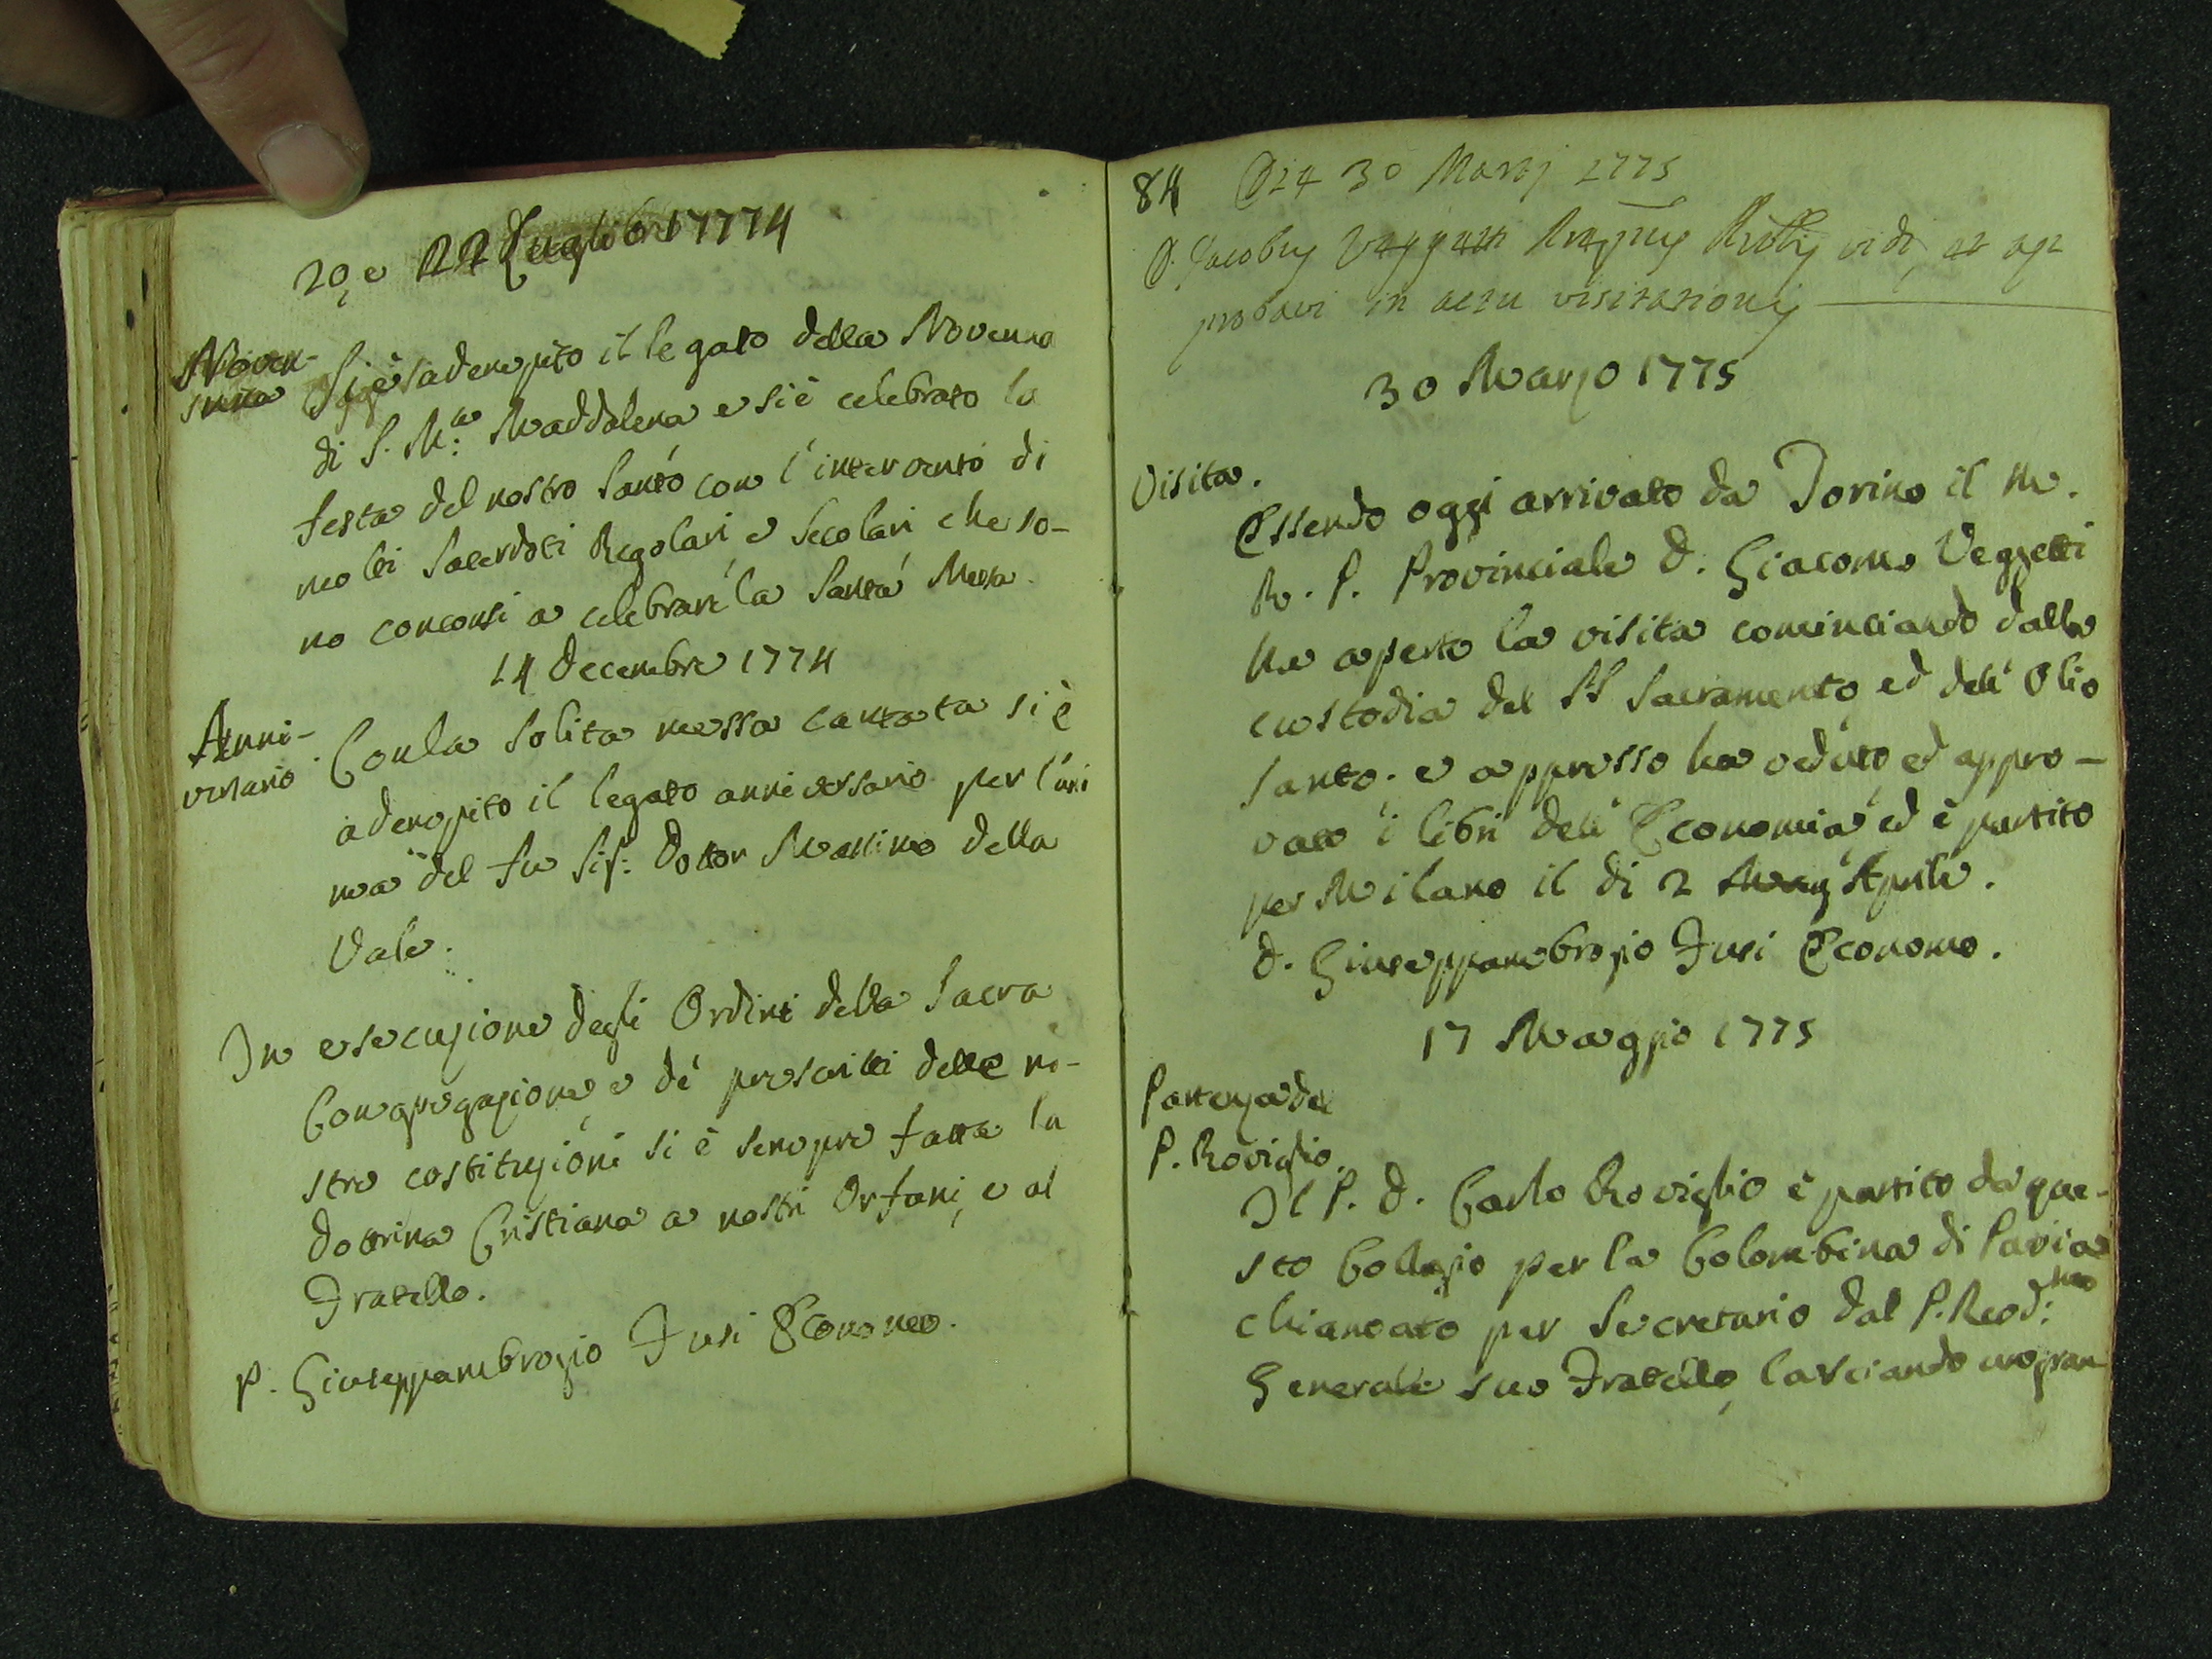 20, e 22 Luglio 1774
Noven-
na
Si è adempito il legato della Novenna
di S. M.a Maddalena e si è celebrato la
festa del nostro Santo con l'intervento di
molti Sacerdoti Regolari e Secolari che so-
no concorsi a celebrare la Santa Messa.
14 Decembre 1774
Anni-
versario
Con la solita messa cantata si è
adempito il legato anniversario per l'ani
ma del fu Sig: Dottor Martino della
Vale.
In esecuzione degli Ordini della Sacra
Congregazione, e de' prescritti delle no-
stre costituzioni si è sempre fatta la
dottrina Cristiana a nostri Orfani, e al
Fratello.
P. Giuseppambrogio Fusi Economo.
84
Die 30 Martij 1775
D. Jacobus Veggetti vidi, et ap
probavi in actu visitationis
30 Marzo 1775
Visita.
Essendo oggi arrivato da Torino il M.
R. P. Provinciale D. Giacomo Veggetti
ha aperto la visita cominciando dalla
custodia del SS Sacramento, ed dell'Olio
Santo; e appresso ha veduto, ed appro-
vato i libri dell'Economia, ed è partito
per Milano il di 2 Aprile.
D. Giuseppambrogio Fusi Economo.
17 Maggio 1775
Partenza del
P. Roviglio.
Il P. D. Carlo Roviglio è partito da que-
sto Collegio per la Colombina di Pavia
chiamato per Secretario dal P. Revd:mo
Generale suo Fratello, lasciando un gran